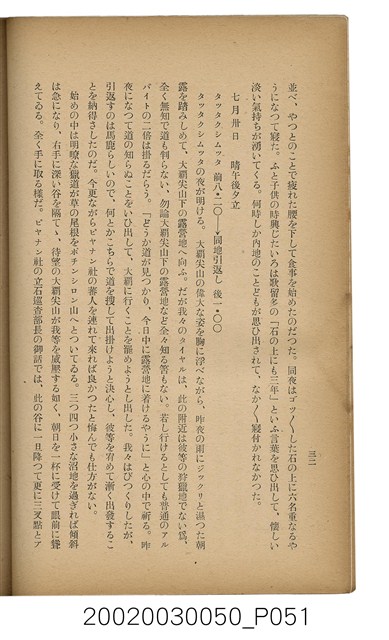 三二
並べ、やつとのことで疲れた腰を下して食事を始めたのだつた。同夜はゴツ〱した石の上に六名重なるや
うになつて寢た。ふと子供の時興じたいろは歌留多の「石の上にも三年」といふ言葉を思ひ出して、懷しい
淡い氣持ちが湧いてくる。何時しか內地のことどもが思ひ出されて、なか〱寢付かれなかつた。
七月卅日　晴午後夕立
タツタクシムツタ　前八・二〇―→同地引返し　後一・〇〇
タツタクシムツタの夜が明ける。大霸尖山の偉大な姿を胸に浮べながら、昨夜の雨にジツクリと濕つた朝
露を踏みしめて、大霸尖山下の露營地へ向ふ。だが我々のタイヤルは、此の附近は彼等の狩獵地でない爲、
全く無知で道も判らない、勿論大霸尖山下の露營地など全々知る筈もない。若し行けるとしても普通のアル
バイトの二倍は掛るだらう。「どうか道が見つかり、今日中に露營地に着けるやうに」と心の中で祈る。昨
夜になつて道の知らぬことをいひ出して、大霸に行くことを罷めようとし出した。我々はびつくりしたが、
引返すのは馬鹿らしいので、何とかこちらで道を搜して出掛けようと決心し、彼等を宥めて漸く出發するこ
とを納得さしたのだ。今更ながらピヤナン社の蕃人を連れて來れば良かつたと悔んでも仕方がない。
始めの中は明瞭な獵道が草の尾根をボチンシロン山へとついてゐる。三つ四つ小さな沼地を過ぎれば傾斜
は急になり、右手に深い谷を隔てゝ、待望の大霸尖山が我等を威壓する如く、朝日を一杯に受けて眼前に聳
えてゐる。全く手に取る樣だ。ピヤナン社の立石巡査部長の御話では、此の谷に一旦降つて更に三叉點とア
20020030050_P051